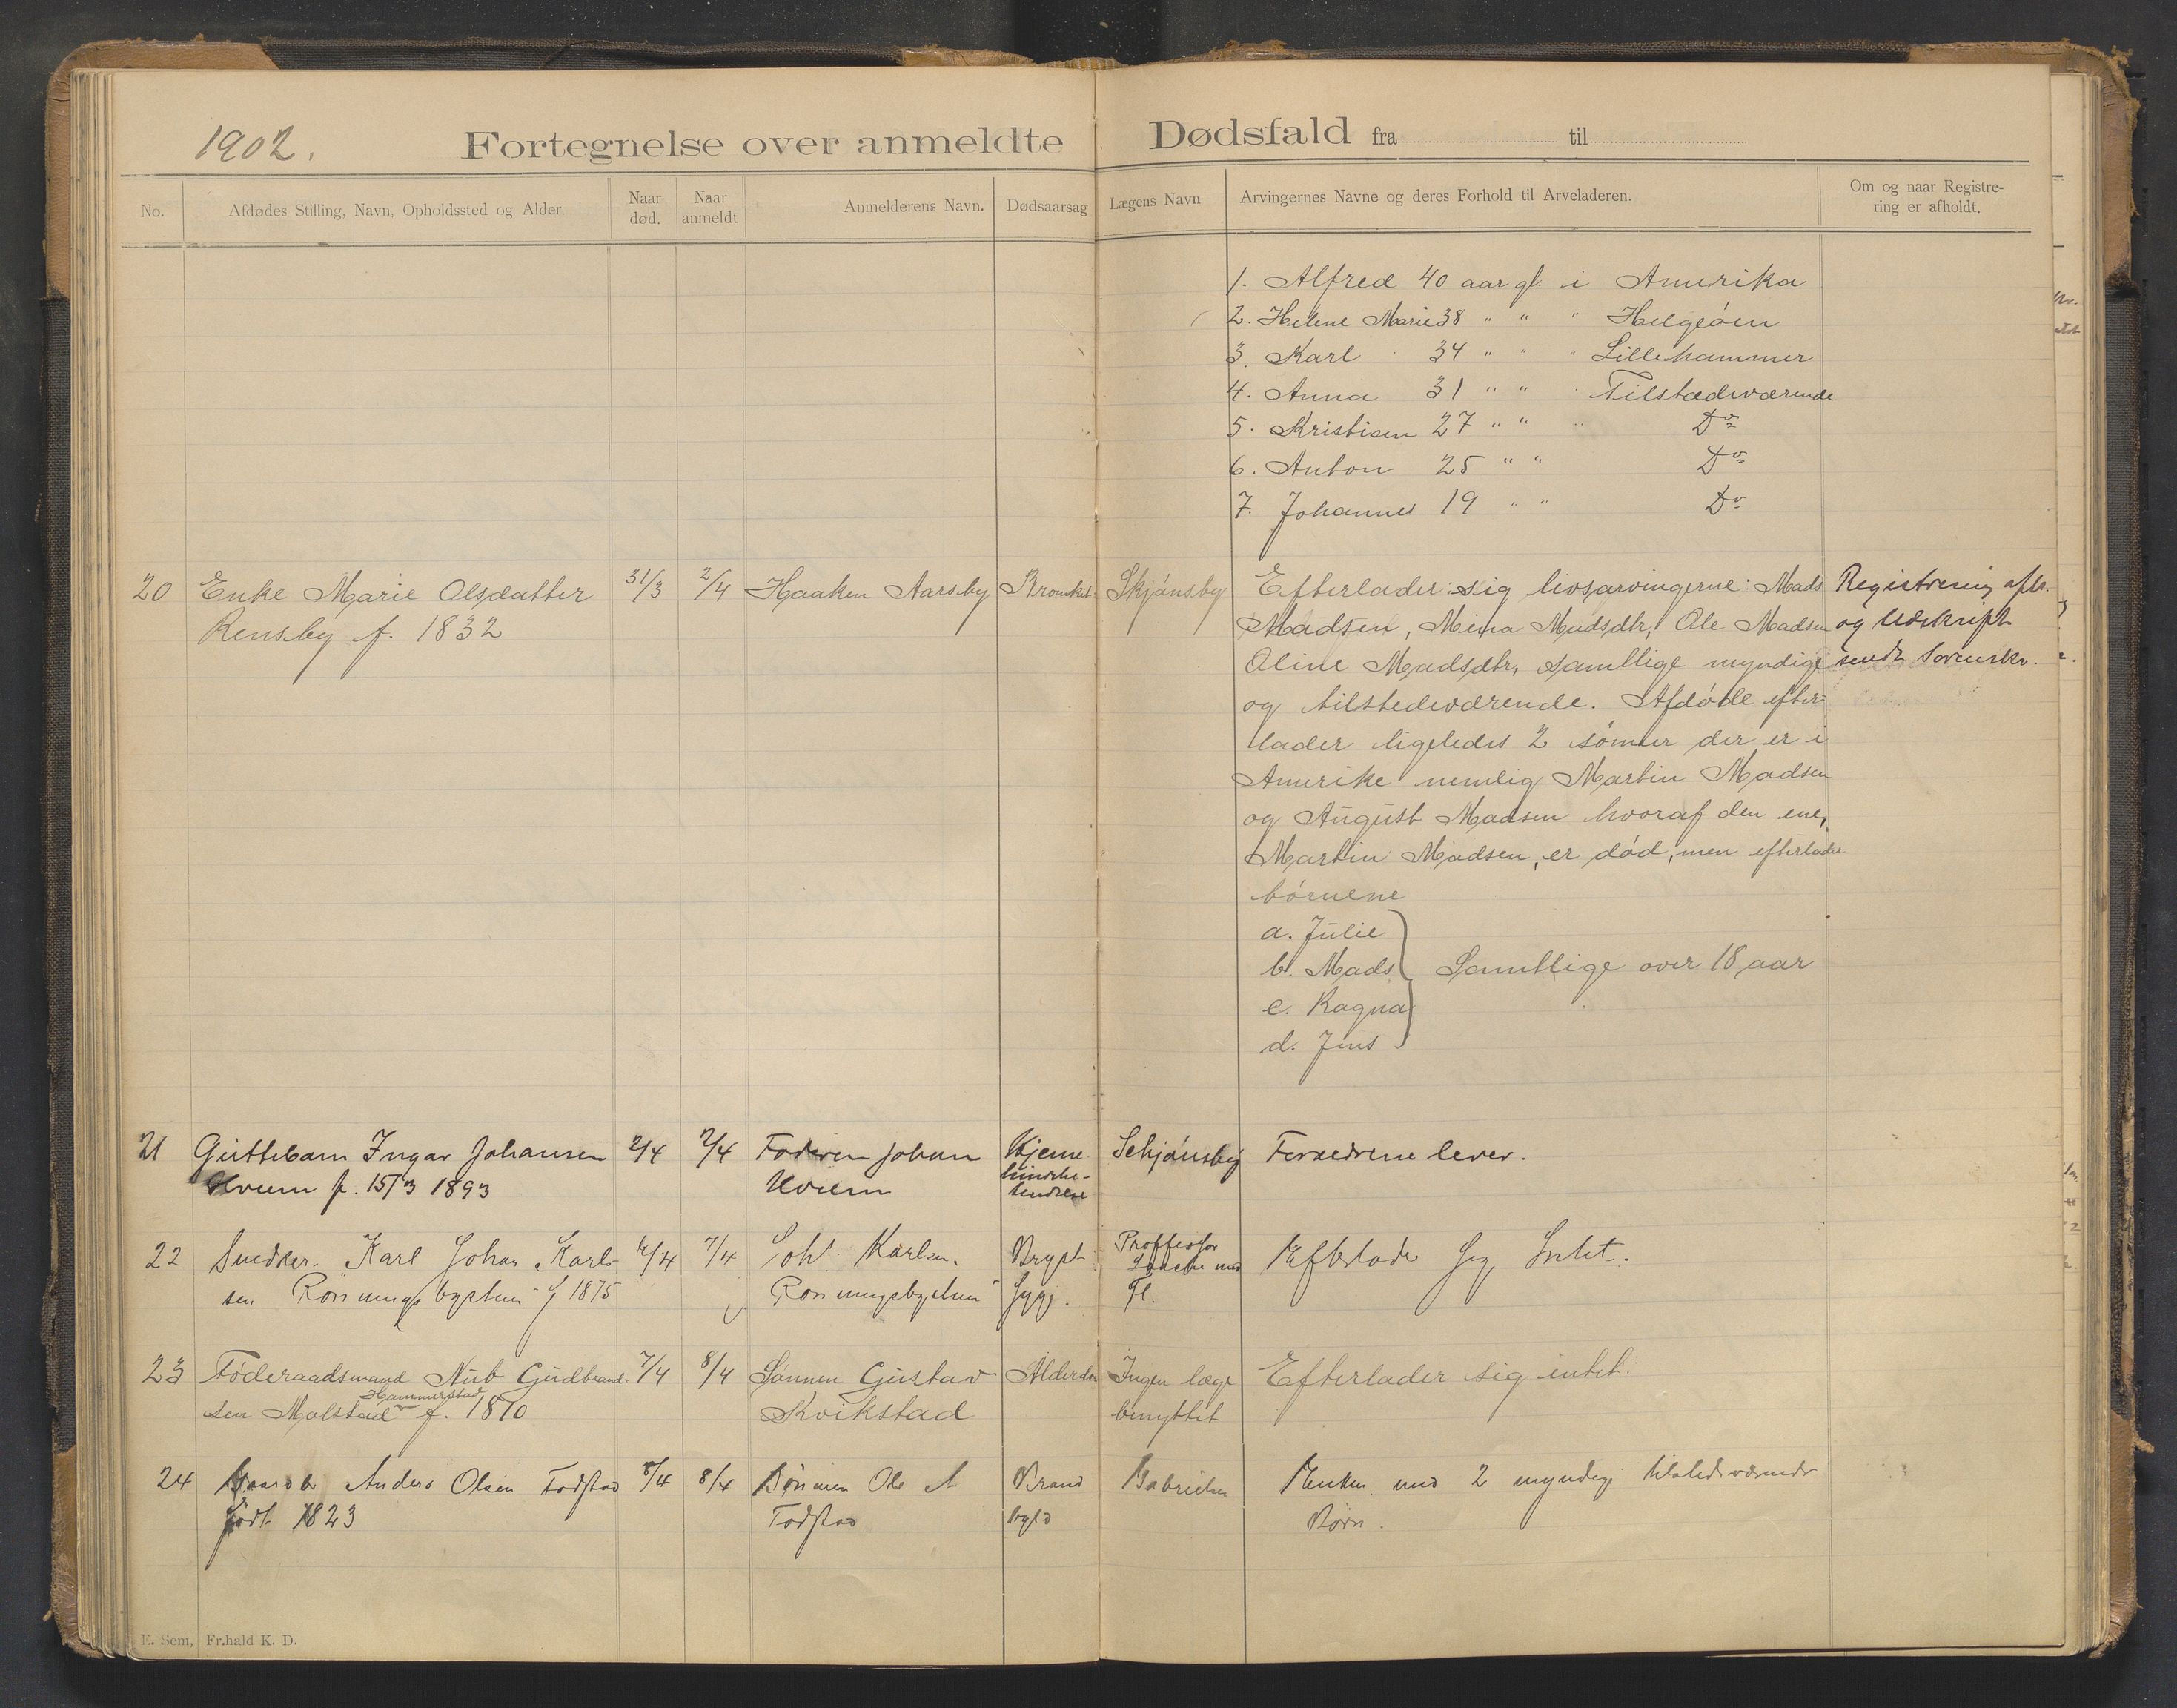 1902.
Fortegnelse over anmeldte Dødsfald fra til
No.
Afdødes Stilling, Navn, Opholdssted og Alder.
Naar død.
Naar anmeldt
Anmelderens Navn.
Dødsaarsag
Lægens Navn
Arvingernes Navne og deres Forhold til Arveladeren.
Om og naar Registre-
ring er afholdt.
1. Alfred 40 aar gl. i Amerika
2. Helene Marie 38 " " " Helgeöen
3. Karl 34 " " " Lillehammer
4. Anna 31 " " Tilstedeværende
5. Kristian 27 " " " Do
6. Anton 25 " " Do
7. Johannes 19 " " Do
20 Enke Marie Olsdatter 31/3 2/4 Haaken Aarsby Bronkit Skjönsby Efterlader sig livsarvingerne: Mads Registrering afh.
Rensby f. 1832 Madsen, Mina Madsdtr, Ole Madsen og Udskript
Oline Madsdtr, samtlige myndige sendt Sorenskr.
og tilstedeværende. Afdöde efter-
lader ligeledes 2 sönner der er i
Amerike nemlig Martin Madsen
og August Madsen hvoraf den ene,
Martin Madsen, er död, men efterlader
börnene
a. Julie
b. Mads Samtlige over 18 aar
c. Ragna
d. Jens
21 Guttebarn Ingar Johansen 2/4 7/4 Faderen Johan Hjerne Schjönsby Foreldrene lever.
Hveem f. 15/3 1893 Hveem hindebe-
tendelse
22 Snedker Karl Johan Karl- 6/4 7/4 Joh. Karlsen Bryst Proffessor Efterlader sig Intet.
sen Rönningsbystuen f 1875 Rönningsbystuen syge. Fl.
23 Föderaadsmand Nub Gudbrand- 7/4 8/4 Sönnen Gustav Alderdom Ingen læge Efterlader sig intet.
Hammerstad
sen Molstad f. 1810 Kvikstad benyttet
24 Gaardb Anders Olsen Todstad 8/4 8/4 Sönnen Ole A Brand Gabrielsen Enken med 2 myndige tilstedeværende
födt 1823 Todstad byld Börn.
E. Sem, Fr.hald K. D.